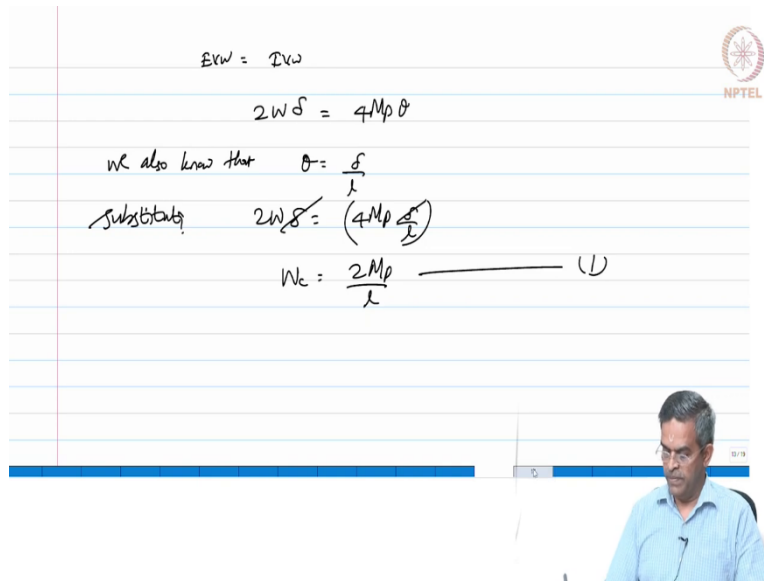 EVW = IVW
NPTEL
2Wδ = 4Mpθ
We also know that θ = δ/l
Substituting 2Wδ = (4Mp δ/l)
Wc = 2Mp/l ——— (1)
13/19